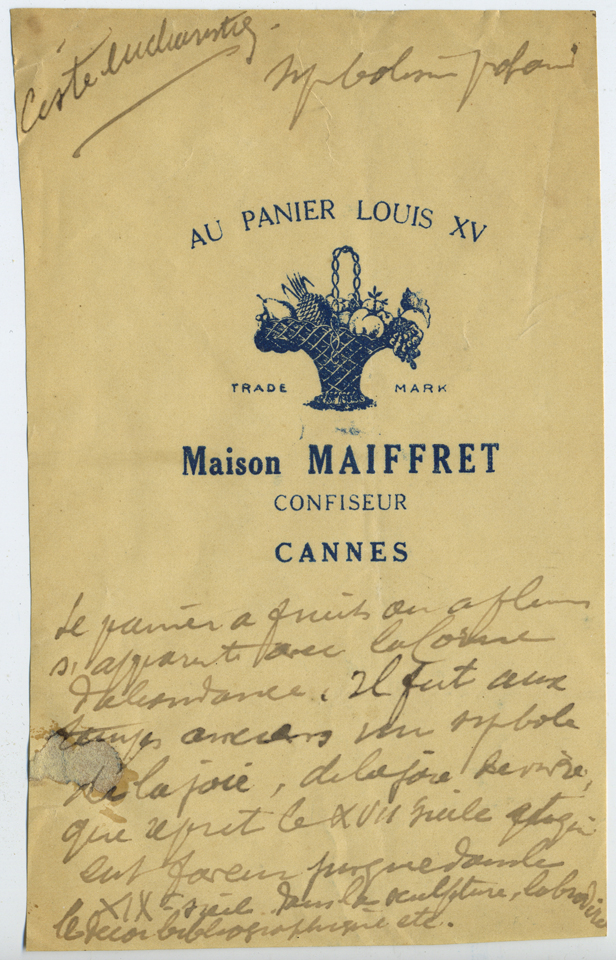 Ciste eucharistiq.
Symbolisme profane
AU PANIER LOUIS XV
TRADE MARK
Maison MAIFFRET
CONFISEUR
CANNES
Le panier a fruits ou a fleurs
s'apparente avec la Corne
d'abondance. Il fut aux
temps anciens un symbole
de la joie, de la joie de vivre,
que reprit le XVII siecle et qui
eut faveur jusque dans le
XIX siecle dans la sculpture, la broderie
le decor bibliographique etc.